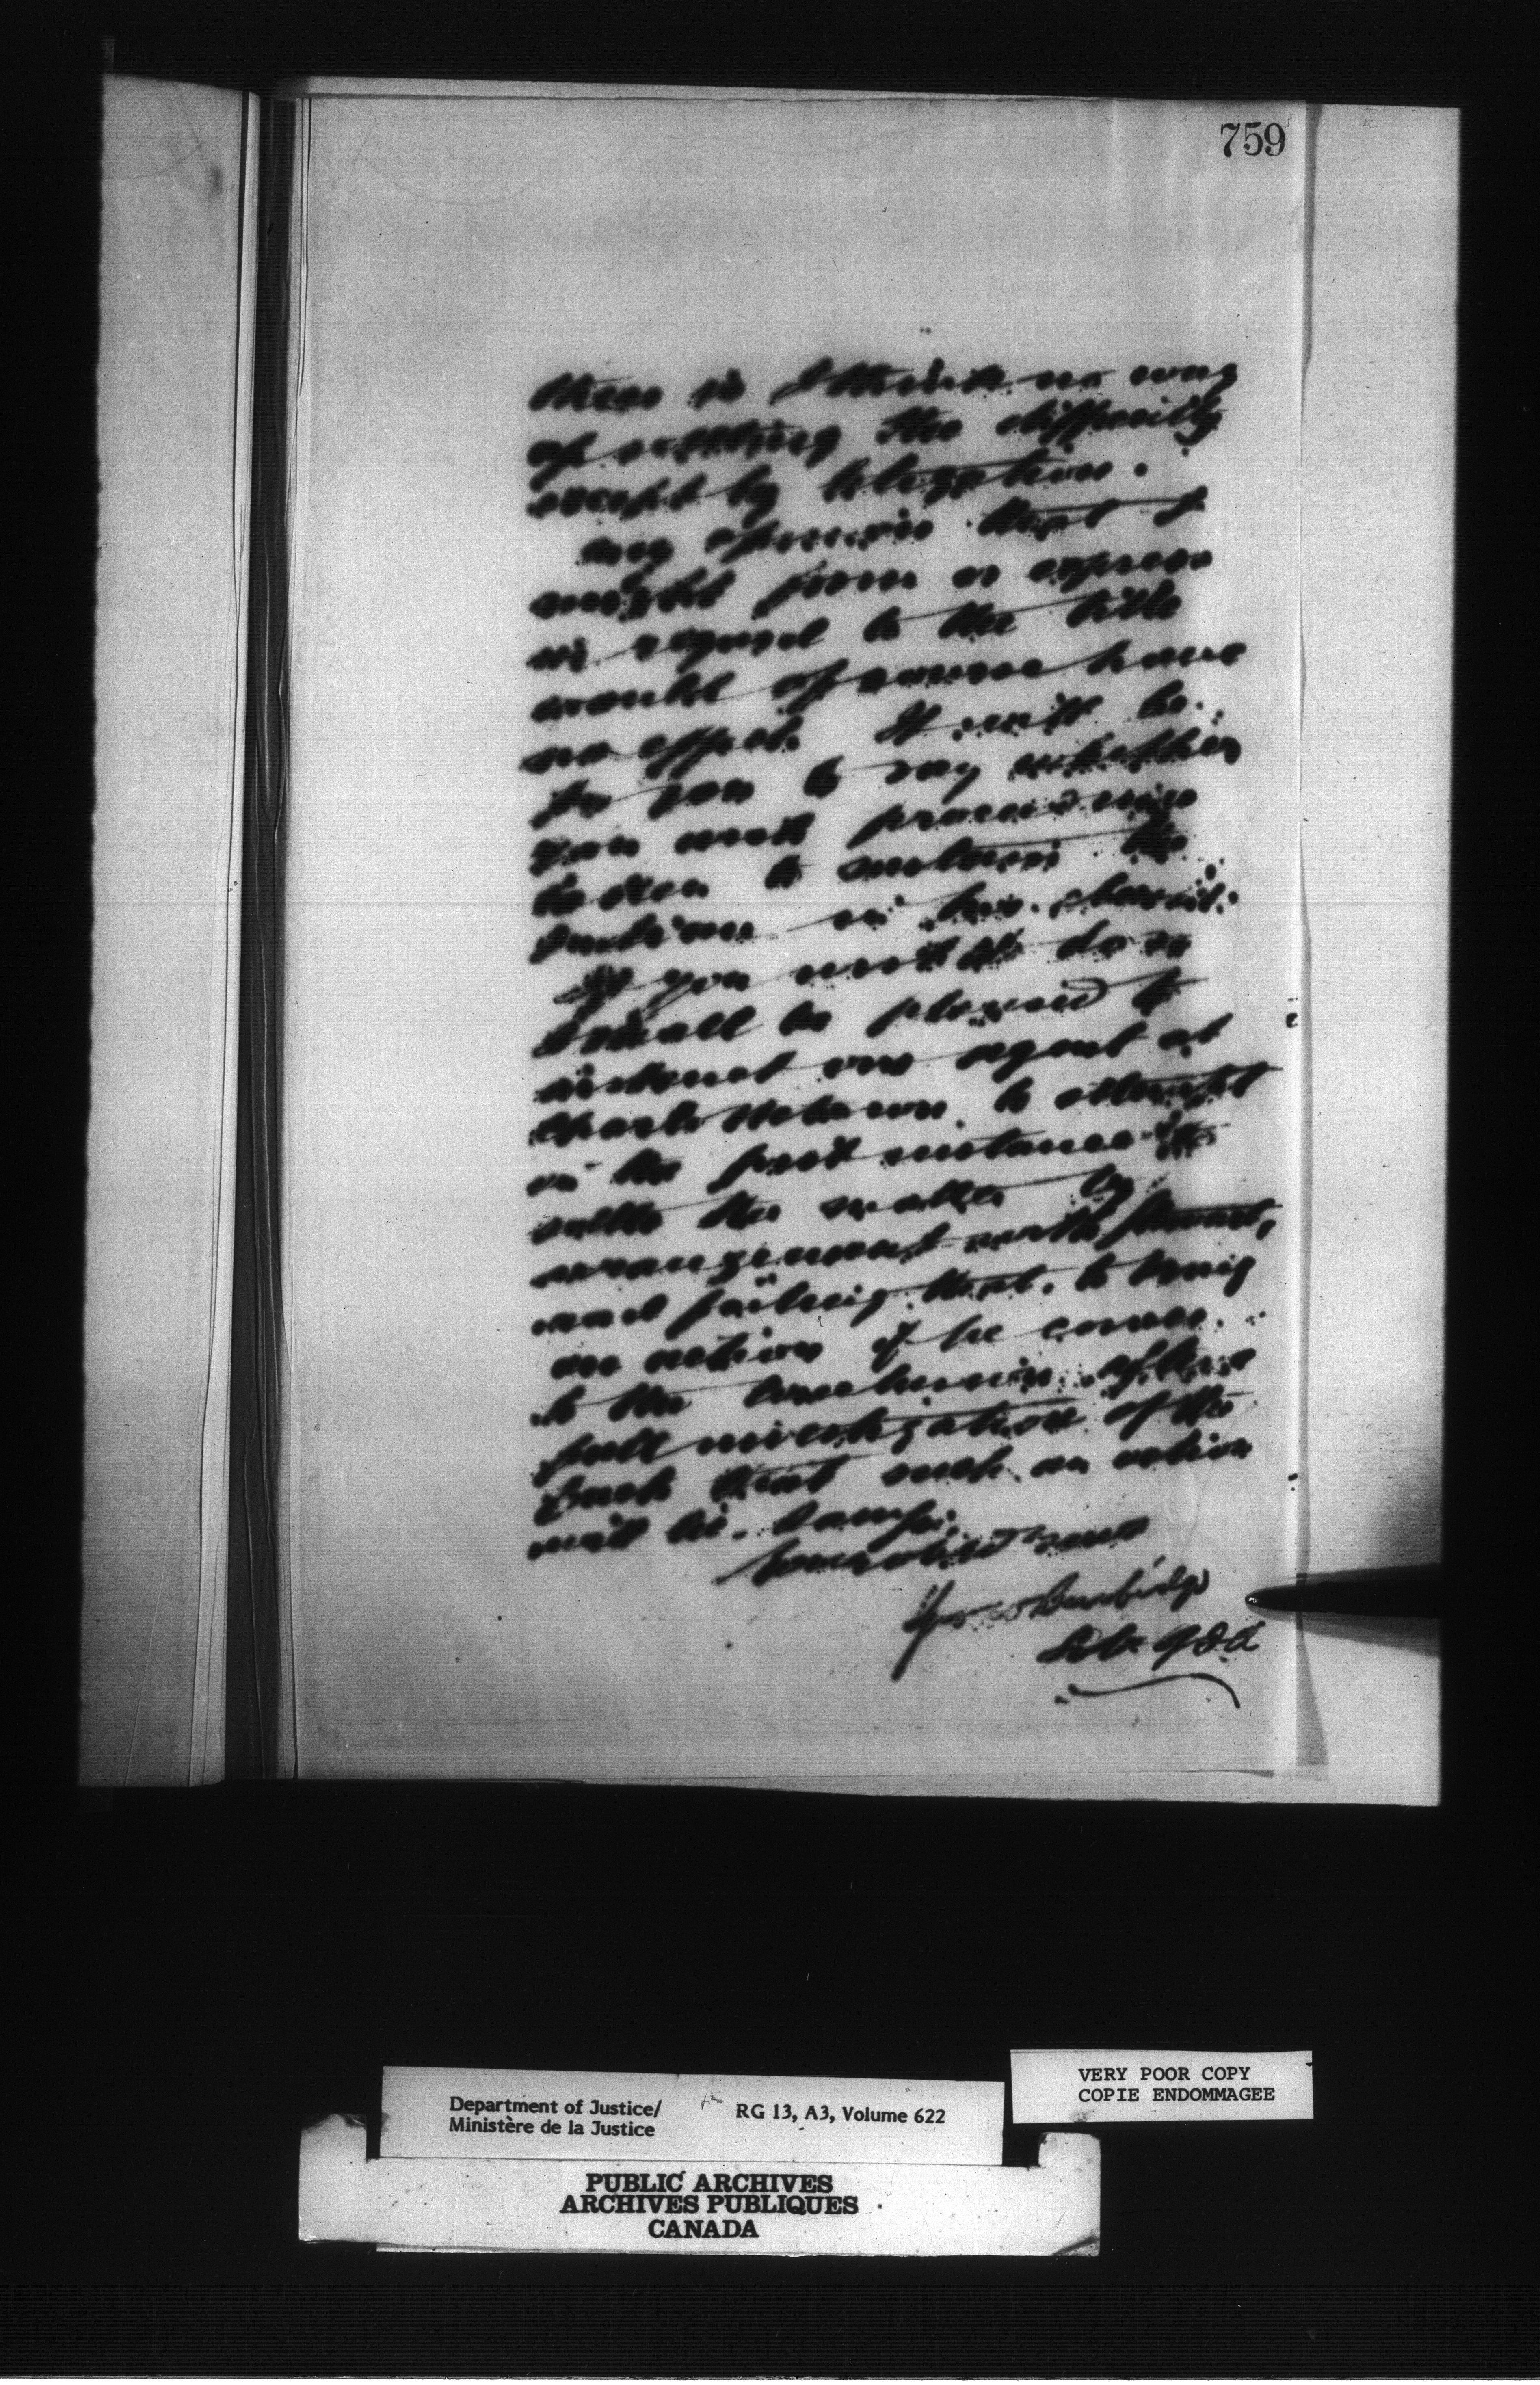 759
there is I think no way
of settling the difficulty
except by litigation.
any opinion that I
might form or express
in regard to the title
would of course have
no effect. It will be
for you to say whether
you wish proceedings
taken to sustain the
Indians in his claim.
If you wish to do so
I shall be pleased to
instruct our agent at
Charlottetown to attempt
in the first instance to
settle the matter by
arrangement with
and failing that, to bring
an action if he comes
to the conclusion after a
full investigation of the
facts that such an action
will lie.
I have
Burbidge
Department of Justice/
Ministère de la Justice
RG 13, A3, Volume 622
VERY POOR COPY
COPIE ENDOMMAGEE
PUBLIC ARCHIVES
ARCHIVES PUBLIQUES
CANADA